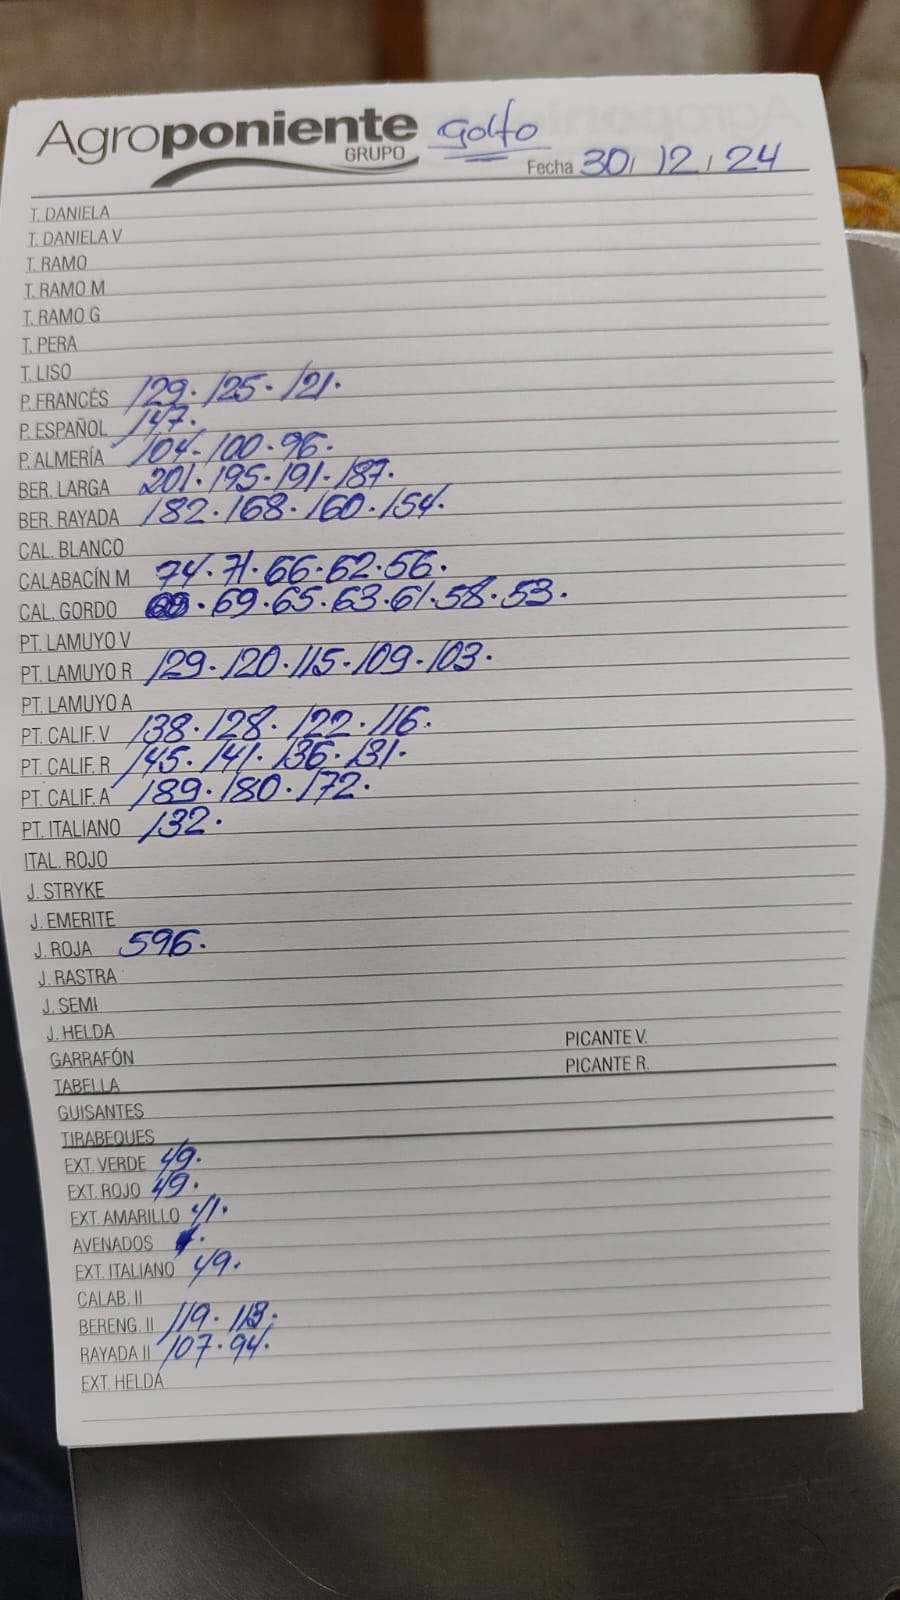 Agroponiente Golfo
GRUPO
Fecha 30/12/24
T. DANIELA
T. DANIELA V
T. RAMO
T. RAMO M
T. RAMO G
T. PERA
T. LISO
P. FRANCÉS 129. 125. 121.
P. ESPAÑOL 147.
P. ALMERÍA 104. 100. 96.
BER. LARGA 201. 195. 191. 187.
BER. RAYADA 182. 168. 160. 154.
CAL. BLANCO
CALABACÍN M 74. 71. 66. 62. 56.
CAL. GORDO . 69. 65. 63. 61. 58. 53.
PT. LAMUYO V
PT. LAMUYO R 129. 120. 115. 109. 103.
PT. LAMUYO A
PT. CALIF. V 138. 128. 122. 116.
PT. CALIF. R 145. 141. 136. 131.
PT. CALIF. A 189. 180. 172.
PT. ITALIANO 132.
ITAL. ROJO
J. STRYKE
J. EMERITE
J. ROJA 596.
J. RASTRA
J. SEMI
J. HELDA
PICANTE V.
GARRAFÓN
PICANTE R.
TABELLA
GUISANTES
TIRABEQUES
EXT. VERDE 49.
EXT. ROJO 49.
EXT. AMARILLO 41.
AVENADOS
EXT. ITALIANO 49.
CALAB. II
BERENG. II 119. 113.
RAYADA II 107. 94.
EXT. HELDA